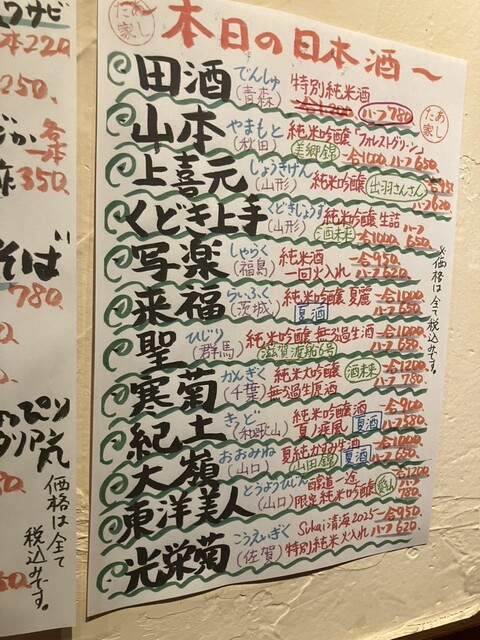 本日の日本酒～
たあ家し
田酒 でんしゅ (青森) 特別純米酒 一合1200 ハーフ780
たあ家し
山本 やまもと (秋田) 純米吟醸「フォレストグリーン」 美郷錦 一合1000 ハーフ650
上喜元 じょうきげん (山形) 純米吟醸 出羽さんさん 一合950 ハーフ620
くどき上手 くどきじょうず (山形) 純米吟醸 生詰 酒未来 一合1000 ハーフ650
写楽 しゃらく (福島) 純米酒 一回火入れ 一合950 ハーフ620
来福 らいふく (茨城) 純米吟醸 夏麗 夏酒 一合1000 ハーフ650
聖 ひじり (群馬) 純米吟醸 無ろ過生酒 滋賀渡船6号 一合1000 ハーフ650
寒菊 かんぎく (千葉) 純米大吟醸 無ろ過生原酒 酒未来 一合1200 ハーフ780
紀土 きっど (和歌山) 純米吟醸酒 夏ノ疾風 夏酒 一合900 ハーフ580
大嶺 おおみね (山口) 夏純かすみ生酒 山田錦 夏酒 一合1000 ハーフ650
東洋美人 とうようびじん (山口) 醇道一途 限定純米吟醸 愛山 一合1200 ハーフ780
光栄菊 こうえいぎく (佐賀) Sukai清海2025 特別純米火入れ 一合950 ハーフ620
※価格は全て税込みです。
ワサビ
本220
250.
各一本
350.
そば
780
価格は全て
税込みです。